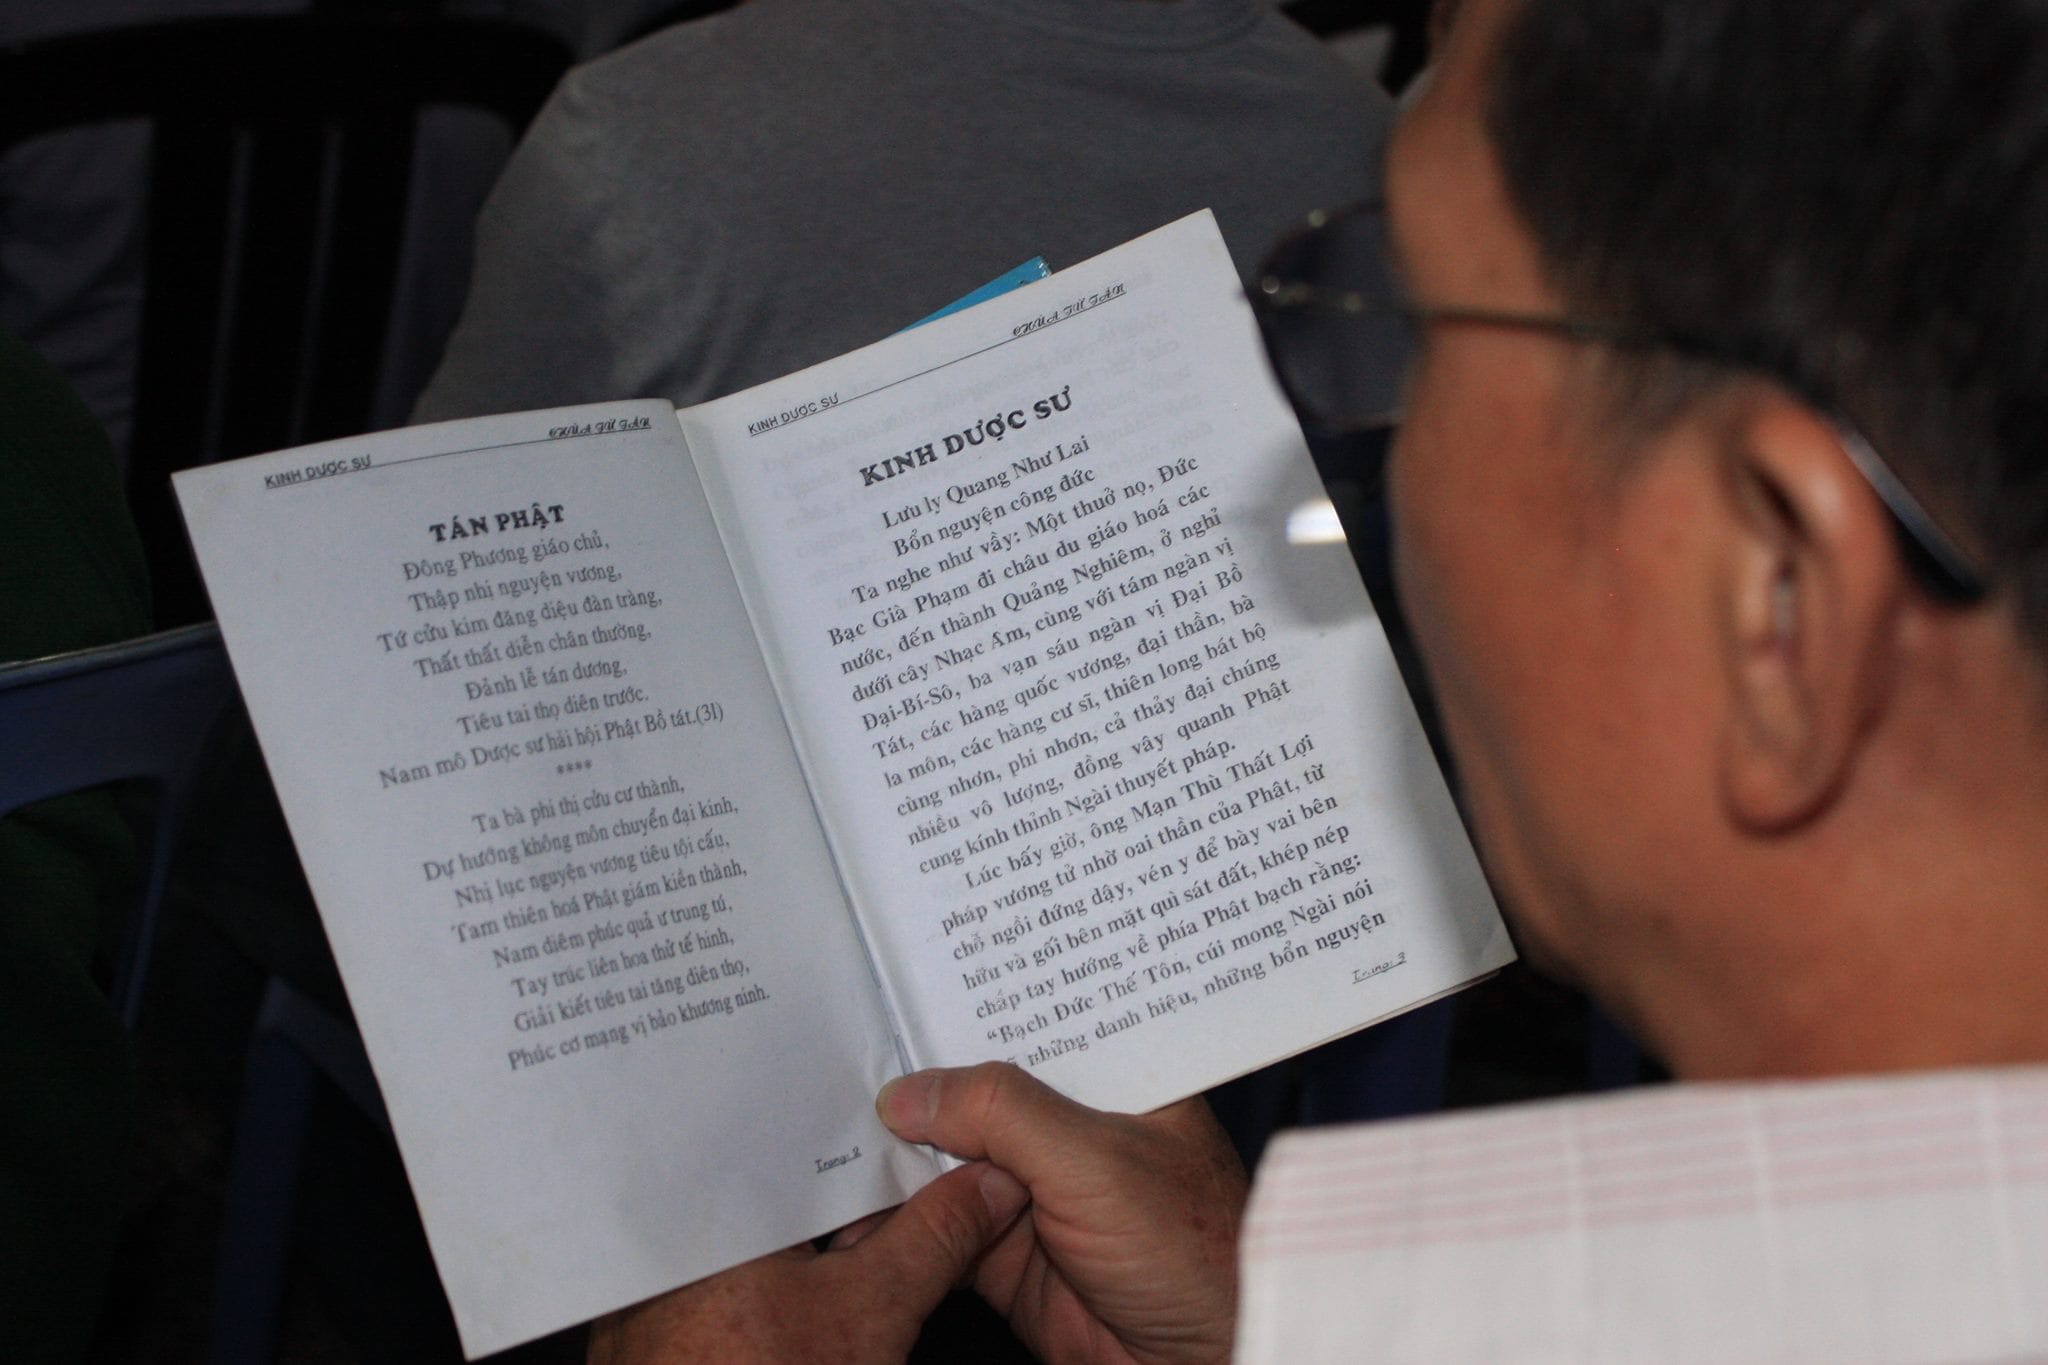 KINH DƯỢC SƯ CHÙA TỪ TÂN
TÁN PHẬT
Đông Phương giáo chủ,
Thập nhị nguyện vương,
Tứ cửu kim đăng diệu đàn tràng,
Thất thất diễn chân thường,
Đảnh lễ tán dương,
Tiêu tai thọ diên trước.
Nam mô Dược sư hải hội Phật Bồ tát.(3l)
****
Ta bà phi thị cửu cư thành,
Dự hướng không môn chuyển đại kinh,
Nhị lục nguyện vương tiêu tội cấu,
Tam thiên hoá Phật giám kiền thành,
Nam diêm phúc quả ư trung tú,
Tay trúc liên hoa thử tế hinh,
Giải kiết tiêu tai tăng diên thọ,
Phúc cơ mạng vị bảo khương ninh.
Trang: 2
KINH DƯỢC SƯ CHÙA TỪ TÂN
KINH DƯỢC SƯ
Lưu ly Quang Như Lai
Bổn nguyện công đức
Ta nghe như vầy: Một thuở nọ, Đức
Bạc Già Phạm đi châu du giáo hoá các
nước, đến thành Quảng Nghiêm, ở nghỉ
dưới cây Nhạc Âm, cùng với tám ngàn vị
Đại-Bí-Sô, ba vạn sáu ngàn vị Đại Bồ
Tát, các hàng quốc vương, đại thần, bà
la môn, các hàng cư sĩ, thiên long bát bộ
cùng nhơn, phi nhơn, cả thảy đại chúng
nhiều vô lượng, đồng vây quanh Phật
cung kính thỉnh Ngài thuyết pháp.
Lúc bấy giờ, ông Mạn Thù Thất Lợi
pháp vương tử nhờ oai thần của Phật, từ
chỗ ngồi đứng dậy, vén y để bày vai bên
hữu và gối bên mặt quì sát đất, khép nép
chắp tay hướng về phía Phật bạch rằng:
“Bạch Đức Thế Tôn, cúi mong Ngài nói
những danh hiệu, những bổn nguyện
Trang: 3